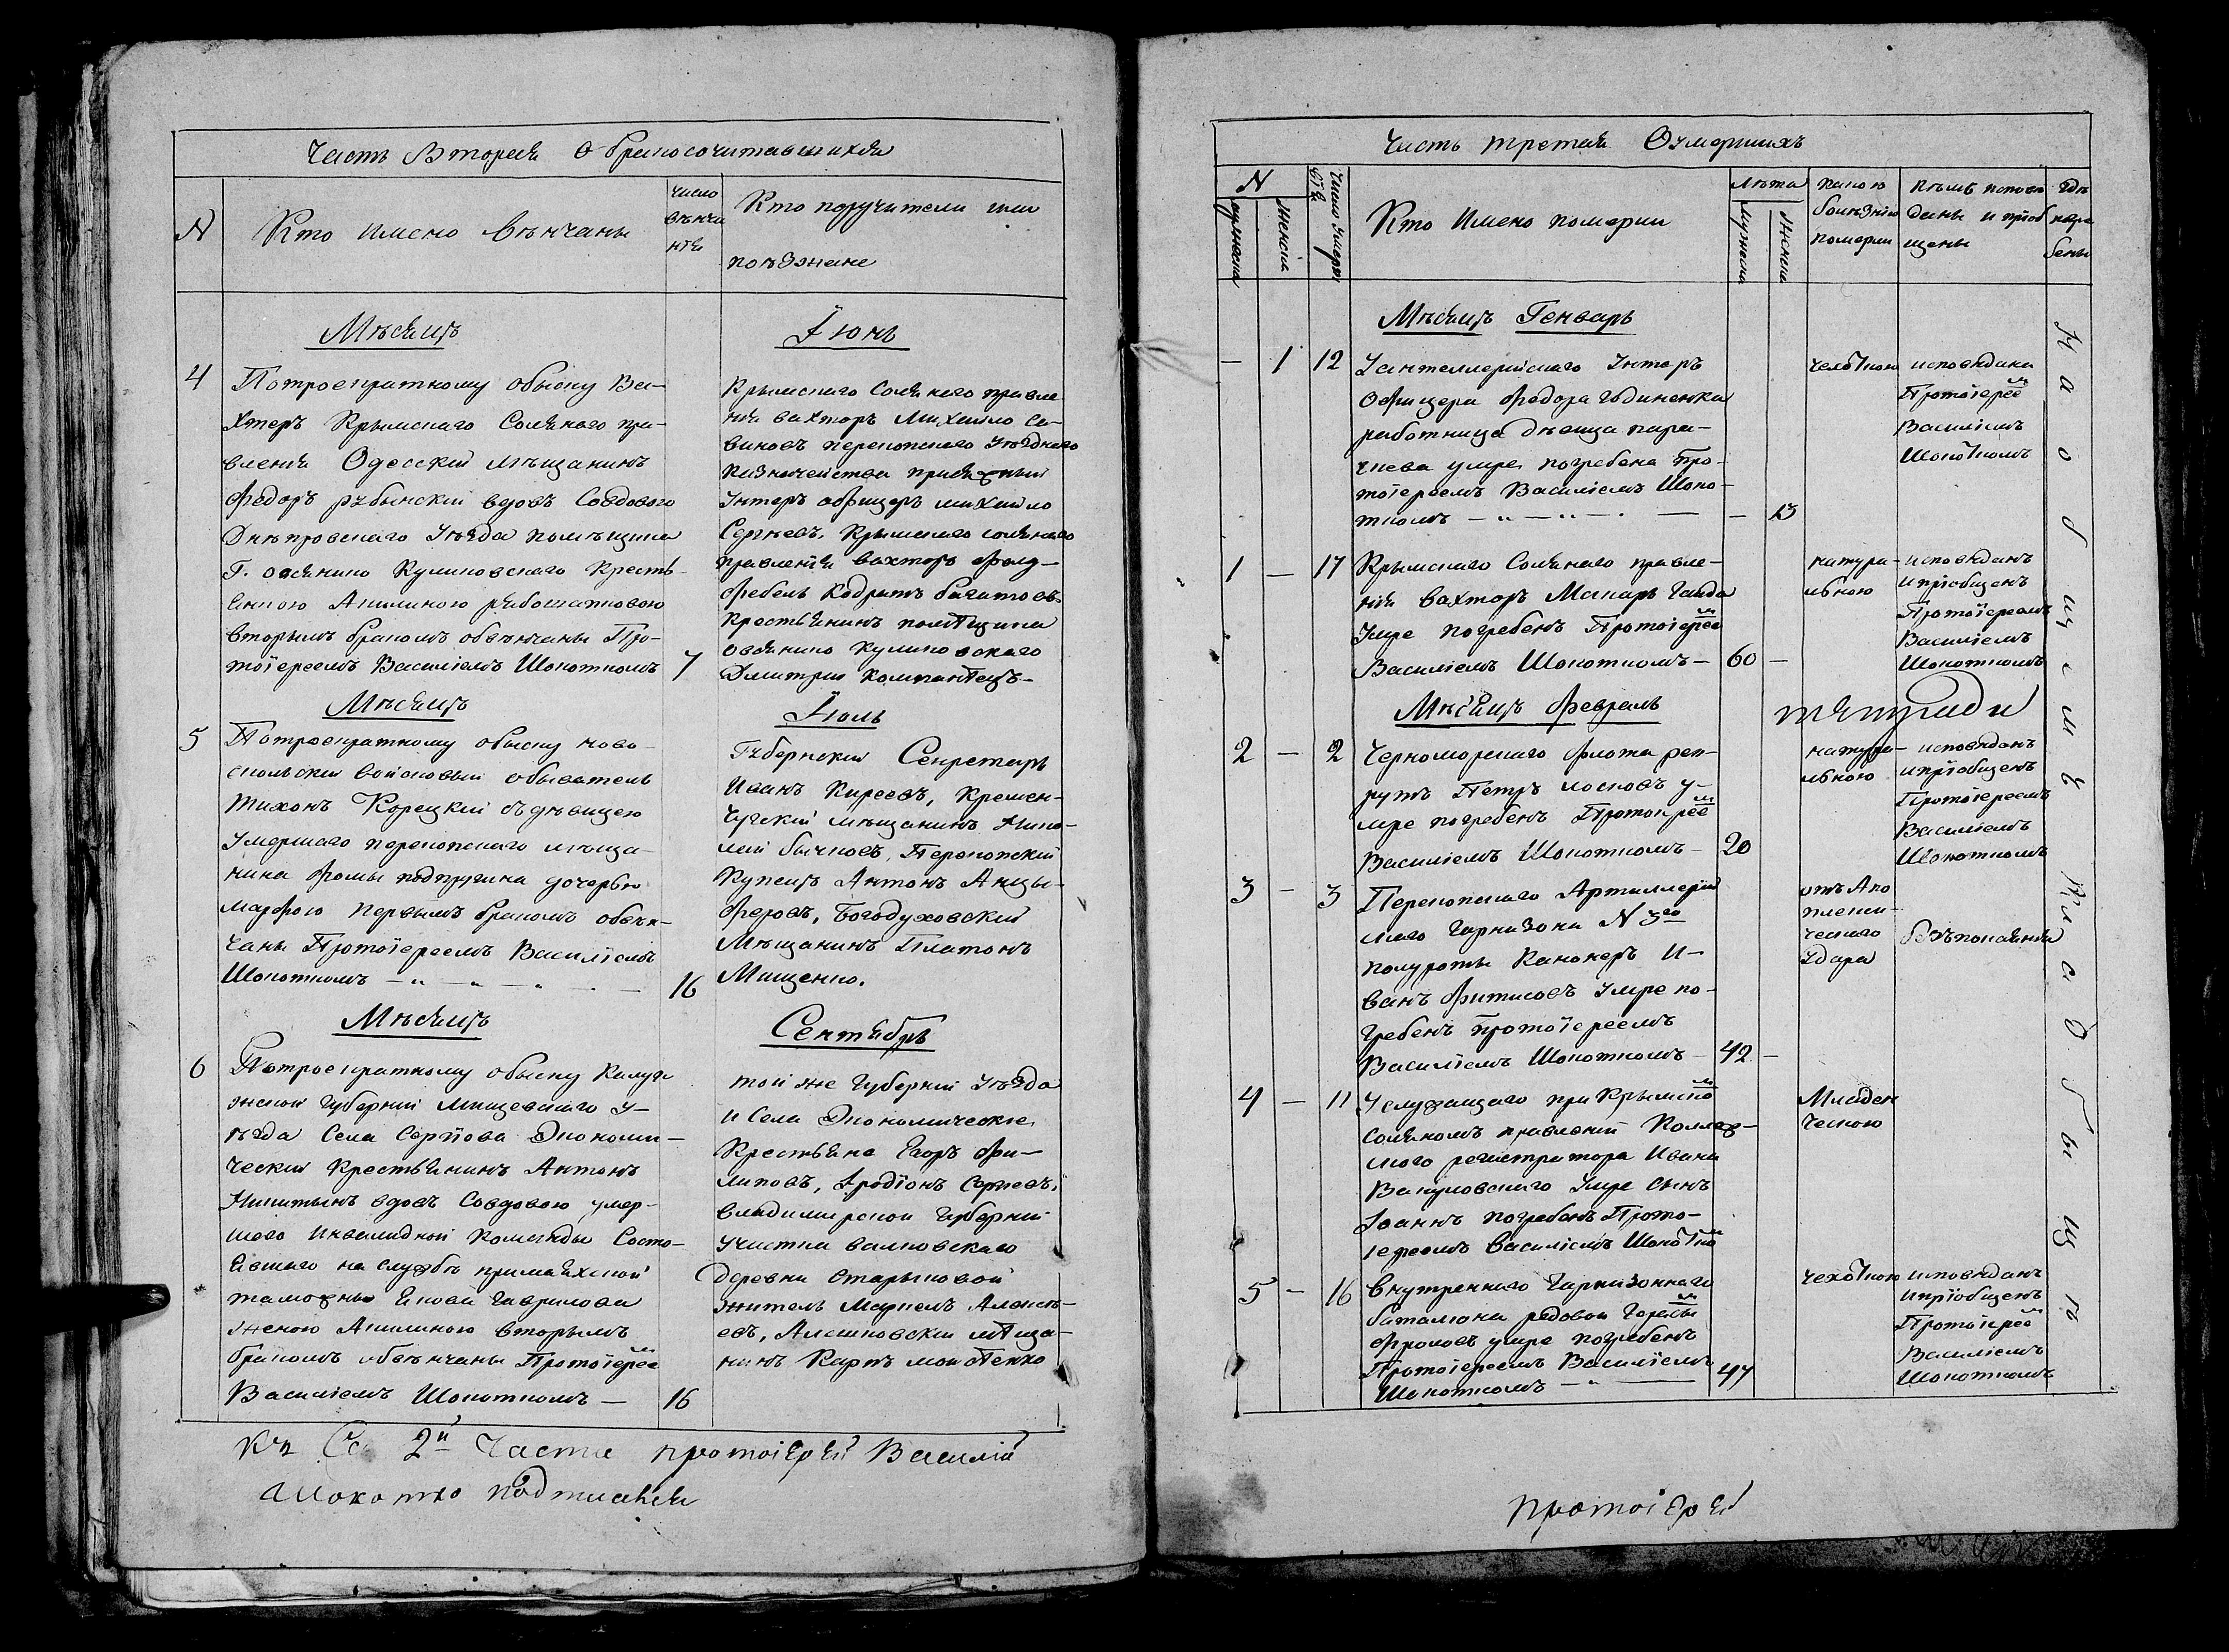 Часть Вторая О бракосочитавшихся
N
Кто имено венчаны
число
венча
нія
Кто поручители или
поезжане
Месяцъ
Іюнь
4
Потроекратному обыску Ва-
хтеръ Крымскаго Солянаго пра-
вленія Одесскій мещанинъ
Федоръ рыбинскій вдовъ Совдового
Днепровскаго Уезда помещика
Г. овсянико Куликовскаго Кресть-
янкою Акилиною
вторымъ бракомъ обвенчаны Про-
тоіереемъ Василіемъ Шокоткомъ
7
Крымскаго Солянаго правле
нія вахторъ Михайло Са-
виновъ перекопскаго Уезднаго
Казначейства присяжный
Унтеръ офицеръ михайло
Сергеевъ, Крымскаго солянаго
правленія вахторъ фелд-
фебель Кодратъ багатовъ
Крестьянинъ помѣщика
овсянико Куликовскаго
Дмитрій
Месяцъ
Іюль
5
Потроекратному обыску ново-
скольскій войсковый обыватель
Тихонъ Корецкій съ девицею
умершаго перекопскаго меща-
нина Фомы подпругина дочерью
Марфою первымъ бракомъ обвен-
чаны Протоіереемъ Василіемъ
Шокоткомъ
16
Губернскій Секретарь
Иванъ Киреевъ, Кремен-
чугскій мещанинъ Нико-
лай бычковъ, Перекопскій
Купецъ Антонъ Анцы-
феровъ, Богодуховскій
Мещанинъ Платонъ
Мищенко.
Месяцъ
Сентябрь
6
Потроекратному обыску Калуж
жской Губерніи Мищевскаго у-
езда Села Серпова Экономи-
ческій Крестьянинъ Антонъ
Никитинъ вдовъ Совдовою умер-
шаго инвалидной Команды Состо-
явшаго на службе
таможне Якова Гаврилова
женою Акилиною вторымъ
бракомъ обвенчаны Протоіерее
Василіемъ Шокоткомъ —
16
той же Губерніи Уезда
и Села Экономическіе
Крестьяне Егоръ Фи-
липовъ, Иродіонъ Сергеевъ,
Владимирской Губерніи
Участка
деревни Старыковой
житель Маркелъ Алексе-
евъ, Алешковскій мѣща-
нинъ Карпъ
Протоіерей Василій
Шокотко подписался
Часть третья О умершихъ
N
мужеска
женска
Число умерт
ствія
Кто имено померли
Лета
мужеска
женска
Какою
болезнію
померли
Кемъ испове
даны и пріоб
щены
где
погре
бены
Месяцъ Генварь
— 1 12
У антеллерійскаго Унтеръ
Офицера Федора
работница девица пара-
скева умре погребена Про-
тоіереемъ Василіемъ Шоко-
ткомъ
— 13
чехоткою
исповедана
Протоіерее
Василіемъ
Шокоткомъ
1 — 17
Крымскаго Солянаго правле-
нія вахторъ Макаръ Гайда
Умре погребенъ Протоіерее
Василіемъ Шокоткомъ —
60 —
натура-
льною
исповеданъ
и пріобщенъ
Протоіереемъ
Василіемъ
Шокоткомъ
Месяцъ Февраль
2 — 2
Черноморскаго флота рек-
рутъ Петръ носковъ у-
мре погребенъ Протоіерее
Василіемъ Шокоткомъ —
20
натура-
льною
исповеданъ
и пріобщенъ
Протоіереемъ
Василіемъ
Шокоткомъ
3 — 3
Перекопскаго Артиллерій
скаго Гарнизона N 3го
полуроты Канонеръ И-
ванъ Фитисовъ Умре по-
гребенъ Протоіереемъ
Василіемъ Шокоткомъ —
42 —
отъ Апо
плекси-
ческаго
Удара
безъ покаянія
4 — 11
У служащаго при Крымско
Соляномъ правленіи Коллеж-
скаго регистратора Ивана
Вакуловскаго Умре сынъ
Іоаннъ погребенъ Прото-
іереемъ Василіемъ Шокотко
Младен
ческою
5 — 16
внутренняго Гарнизоннаго
баталіона редовой
Фроловъ умре погребенъ
Протоіереемъ Василіемъ
Шокоткомъ
47
чехоткою
исповеданъ
и пріобщенъ
Протоіерее
Василіемъ
Шокоткомъ
На общемъ Кладбыще
протоіерей